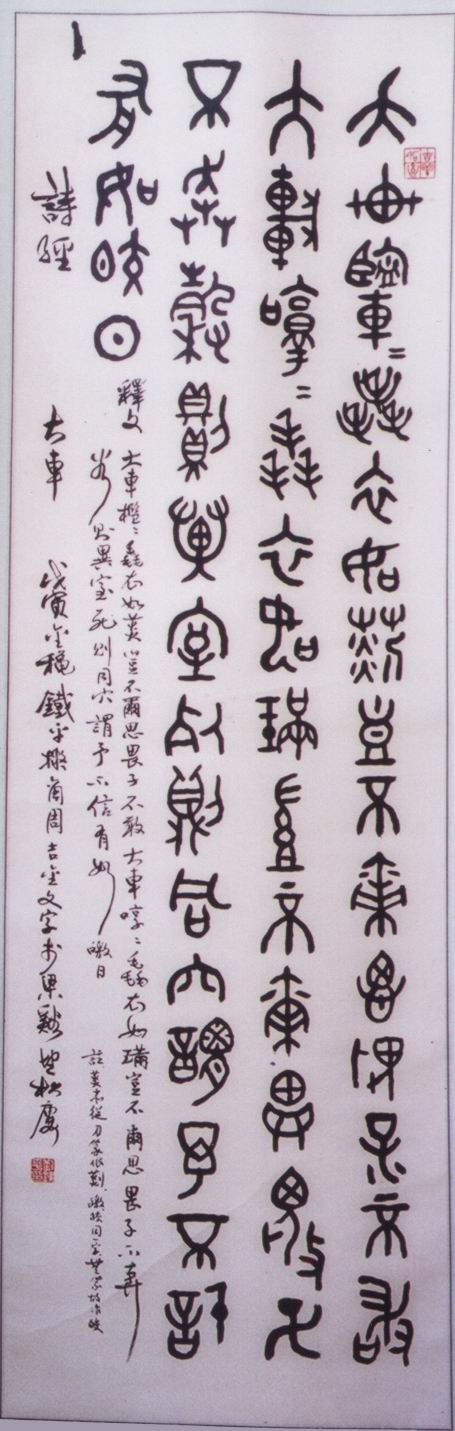 大車轞〻毳衣如菼豈不爾思畏子不敢
大車啍〻毳衣如璊豈不爾思畏子
不奔穀則異室死則同穴謂予不信
有如皎日
釋文 大車檻〻毳衣如菼豈不爾思畏子不敢大車啍〻毳衣如璊豈不爾思畏子不奔
穀則異室死則同穴謂予不信有如皦日
詩經 大車 戊寅金秋鐵平擬商周吉金文字於